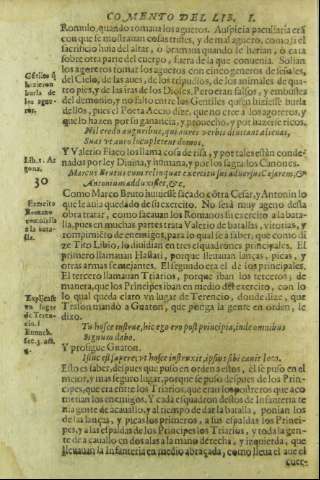 COMENTO DEL LIB. I.
Romulo, quando tomaua los agueros. Auspicia pecularia erã
con que le mostrauan cosas tristes, y de mal aguero, como si el
sacrificio huia del altar, o bramaua quando le herian, o caia
sobre otra parte del cuerpo, fuera de la que conuenia. Solian
los agoreros tomar los agueros con cinco generos de señales,
del Cielo, de las aues, de los tripudios, de los animales de qua
tro pies, y de las iras de los Dioses. Pero eran falsos, y embustes
del demonio, y no falto entre los Gentiles quien hiziesse burla
dellos, pues el Poeta Accio dize, que no cree a los agoreros, y
que lo hazen por su ganancia, y prouecho, y por hazerse ricos.
Nil credo auguribus, qui aures verbis diuitant alienas,
Suas vt auro locupletent domos.
Y Valerio Flaco los llama cosa de risa, y por tales están conde-
nados por ley Diuina, y humana, y por los sagrados Canones.
Marcus Brutus cum relinquat exercitus jus aduersus Cæsarem, &
Antonium adduxisset, &c.
Como Marco Bruto huuiesse sacado cõtra Cesar, y Antonin lo
que le auia quedado de su exercito. No será muy ageno desta
obra tratar, como sacauan los Romanos su exercito a la bata-
lla, pues en muchas partes trata Valerio de batallas, vitorias, y
rompimiẽto de enemigos, para lo qual es a saber, que como di
ze Tito Libio, lo diuidian en tres esquadrones principales. El
primero llamauan Hastari, porque lleuauan lanças, picas, y
otras armas semejantes. El segundo era el de los principales.
El tercero llamauan Triarios, porque iban los terceros, de
manera, que los Principes iban en medio del exercito, con lo
lo qual queda claro vn lugar de Terencio, donde dize, que
Trason mandando a Gnaton, que ponga la gente en orden, le
dixo.
Tu hosce instrue, hic ego ero post principia, inde omnibus
Signum dabo.
Y prosigue Gnaton.
Istuc est sapere, vt hosce instruxit, ipsus sibi cauit loco.
Esto es saber, despues que puso en orden a estos, el se puso en el
mejor, y mas seguro lugar, porque se puso despues de los Prin-
cipes, que era entre los Triarios, que eran los postreros que aco
metian los enemigos. Y cada esquadron destos de Infanteria te
nia gente de acauallo, y al tiempo de dar la batalla, ponian los
de las lanças, y picas los primeros, a sus espaldas los Princi-
pes, y a las espaldas de los Principes los Triarios, y toda la gen-
te de a cauallo en dos alas a la mano derecha, y izquierda, que
lleuauan la Infanteria en medio abraçada, como lleua el aue el
cuer-
Gẽtiles q̃
hizieron
burla de
los ague-
ros.
Lib. 1. Ar
gona.
30
Exercito
Romano
como salia
a la bata-
lla.
Explicase
vn lugar
de Teren-
cio.